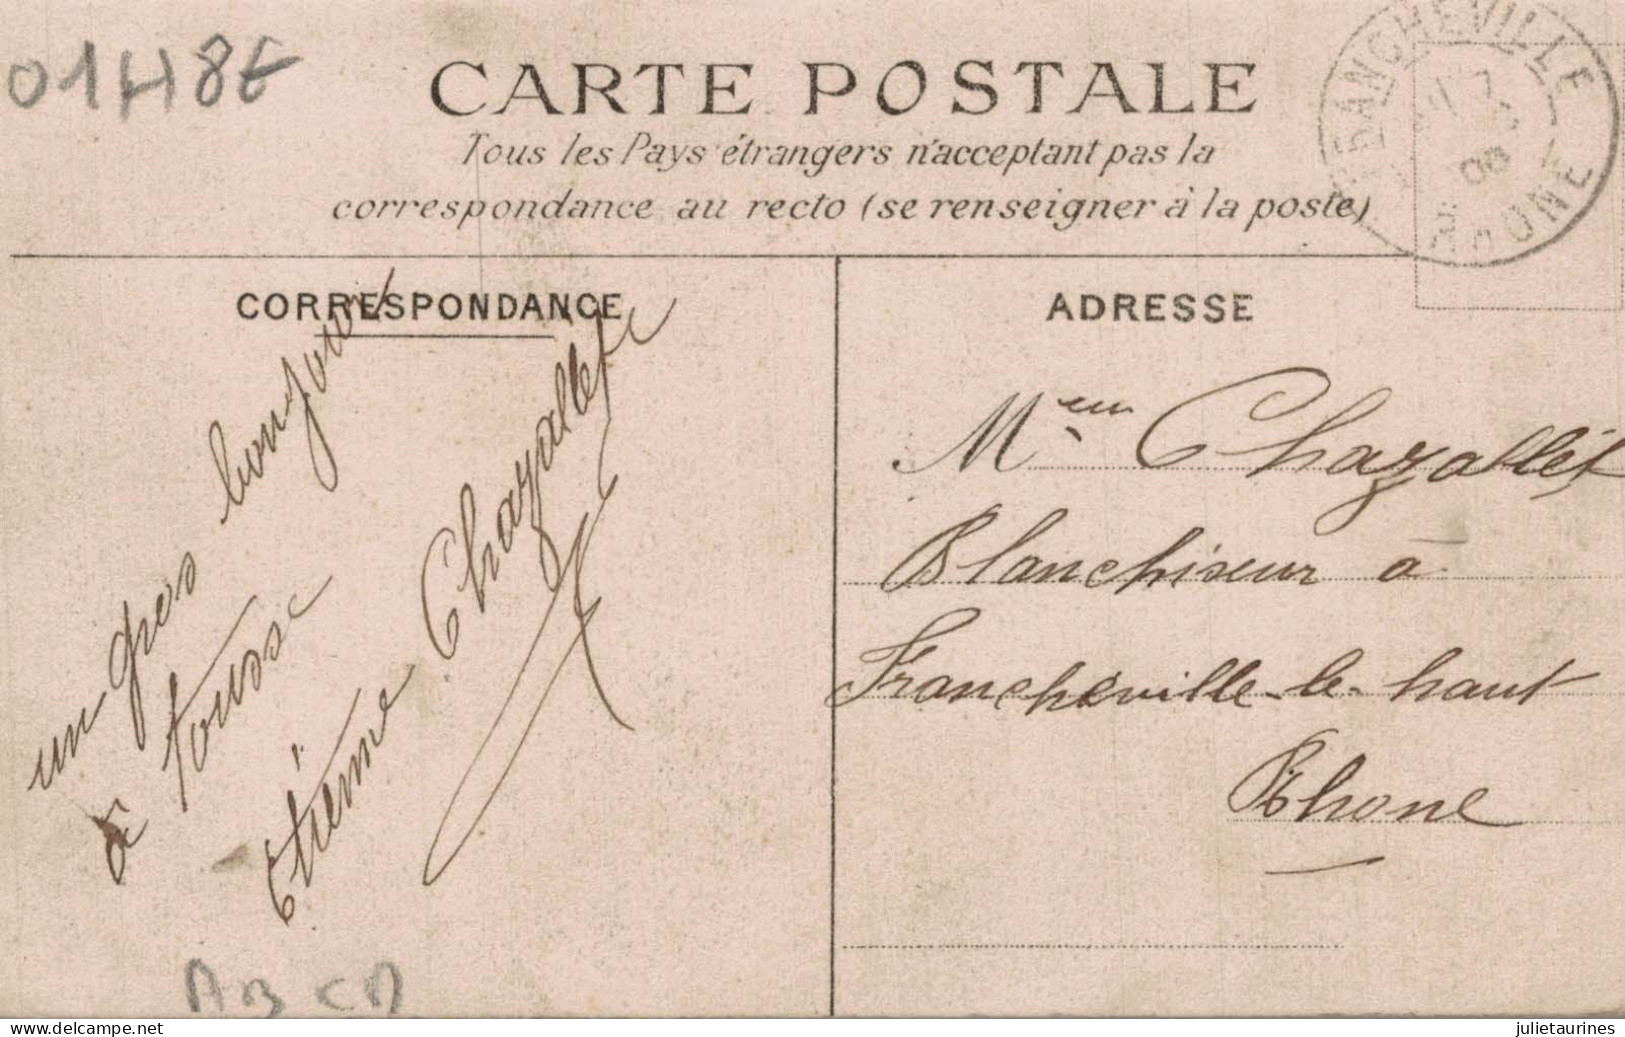 01H8E
CARTE POSTALE
Tous les Pays étrangers n'acceptant pas la
correspondance au recto (se renseigner à la poste)
FRANCHEVILLE
08
RHONE
CORRESPONDANCE
un gros bonjour
à tousse
Etiéme Chazallét
ABCD
ADRESSE
Meur Chazallét
Blanchiseur à
Francheville-le-haut
Rhone
www.delcampe.net
julietaurines